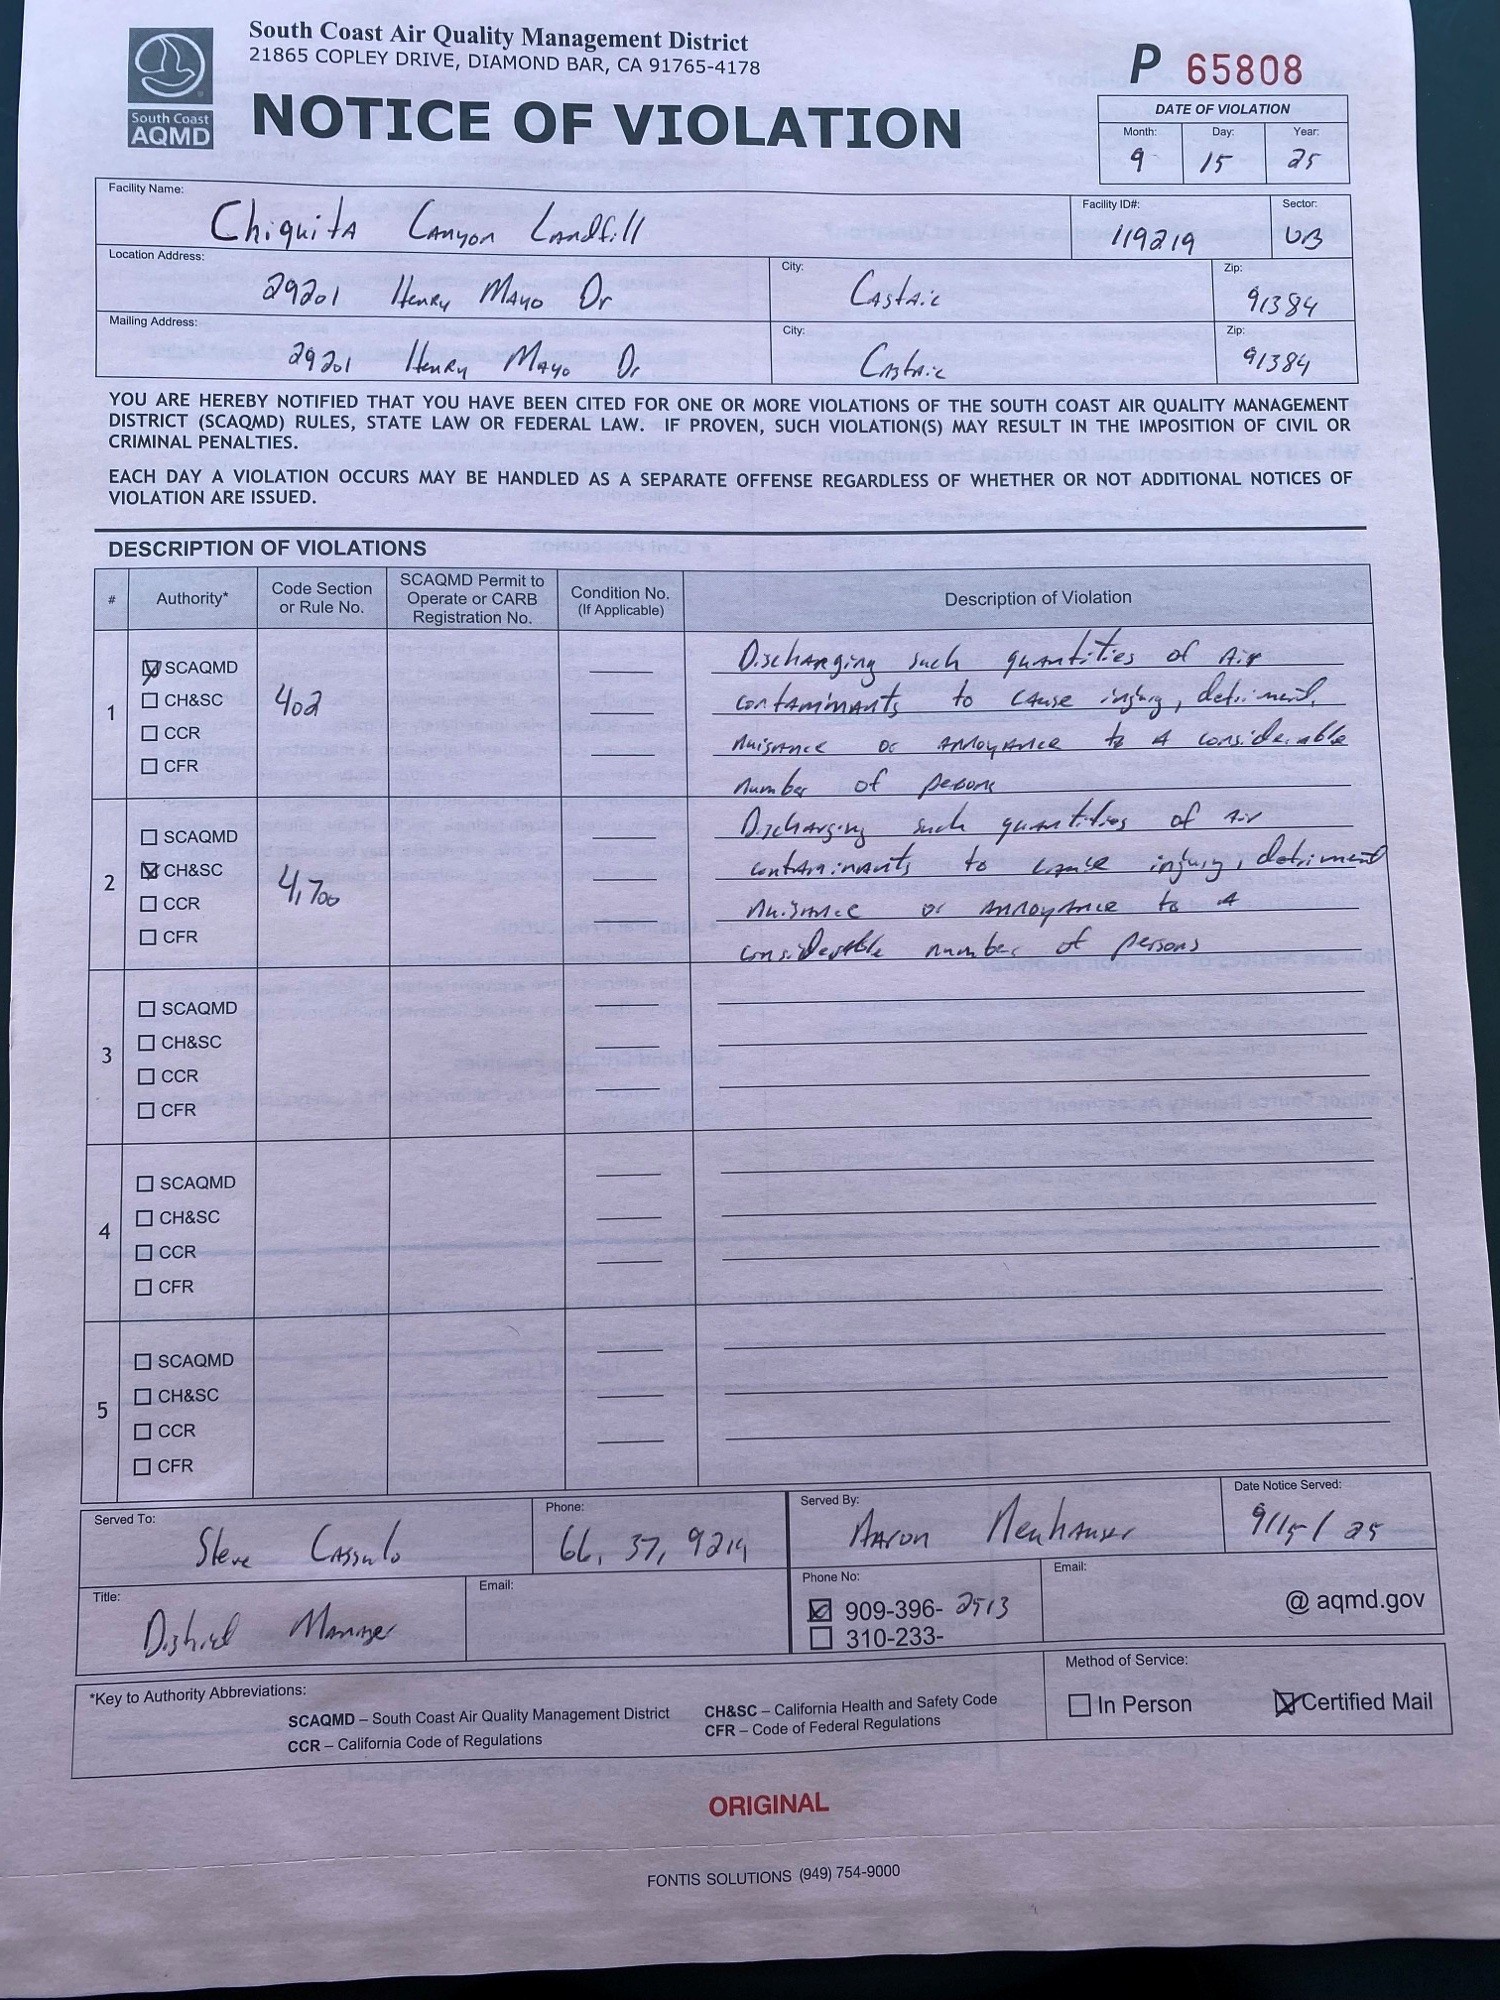 South Coast Air Quality Management District
21865 COPLEY DRIVE, DIAMOND BAR, CA 91765-4178
NOTICE OF VIOLATION
South Coast
AQMD
P 65808
DATE OF VIOLATION
Month: Day: Year:
9 15 25
Facility Name: Facility ID#: Sector:
Chiquita Canyon Landfill 119219 UB
Location Address: City: Zip:
29201 Henry Mayo Dr Castaic 91384
Mailing Address: City: Zip:
29201 Henry Mayo Dr Castaic 91384
YOU ARE HEREBY NOTIFIED THAT YOU HAVE BEEN CITED FOR ONE OR MORE VIOLATIONS OF THE SOUTH COAST AIR QUALITY MANAGEMENT
DISTRICT (SCAQMD) RULES, STATE LAW OR FEDERAL LAW. IF PROVEN, SUCH VIOLATION(S) MAY RESULT IN THE IMPOSITION OF CIVIL OR
CRIMINAL PENALTIES.
EACH DAY A VIOLATION OCCURS MAY BE HANDLED AS A SEPARATE OFFENSE REGARDLESS OF WHETHER OR NOT ADDITIONAL NOTICES OF
VIOLATION ARE ISSUED.
DESCRIPTION OF VIOLATIONS
# Authority* Code Section or Rule No. SCAQMD Permit to Operate or CARB Registration No. Condition No. (If Applicable) Description of Violation
1
SCAQMD
CH&SC
CCR
CFR
402
Discharging such quantities of Air
contaminants to cause injury, detriment,
nuisance or annoyance to a considerable
number of persons
2
SCAQMD
CH&SC
CCR
CFR
41700
Discharging such quantities of Air
contaminants to cause injury, detriment
nuisance or annoyance to a
considerable number of persons
3
SCAQMD
CH&SC
CCR
CFR
4
SCAQMD
CH&SC
CCR
CFR
5
SCAQMD
CH&SC
CCR
CFR
Served To: Phone: Served By: Date Notice Served:
Steve Aaron Neuhauser 9/15/25
Title: Email: Phone No: Email:
District Manager
909-396-2513
310-233-
@ aqmd.gov
*Key to Authority Abbreviations:
SCAQMD – South Coast Air Quality Management District
CCR – California Code of Regulations
CH&SC – California Health and Safety Code
CFR – Code of Federal Regulations
Method of Service:
In Person Certified Mail
ORIGINAL
FONTIS SOLUTIONS (949) 754-9000